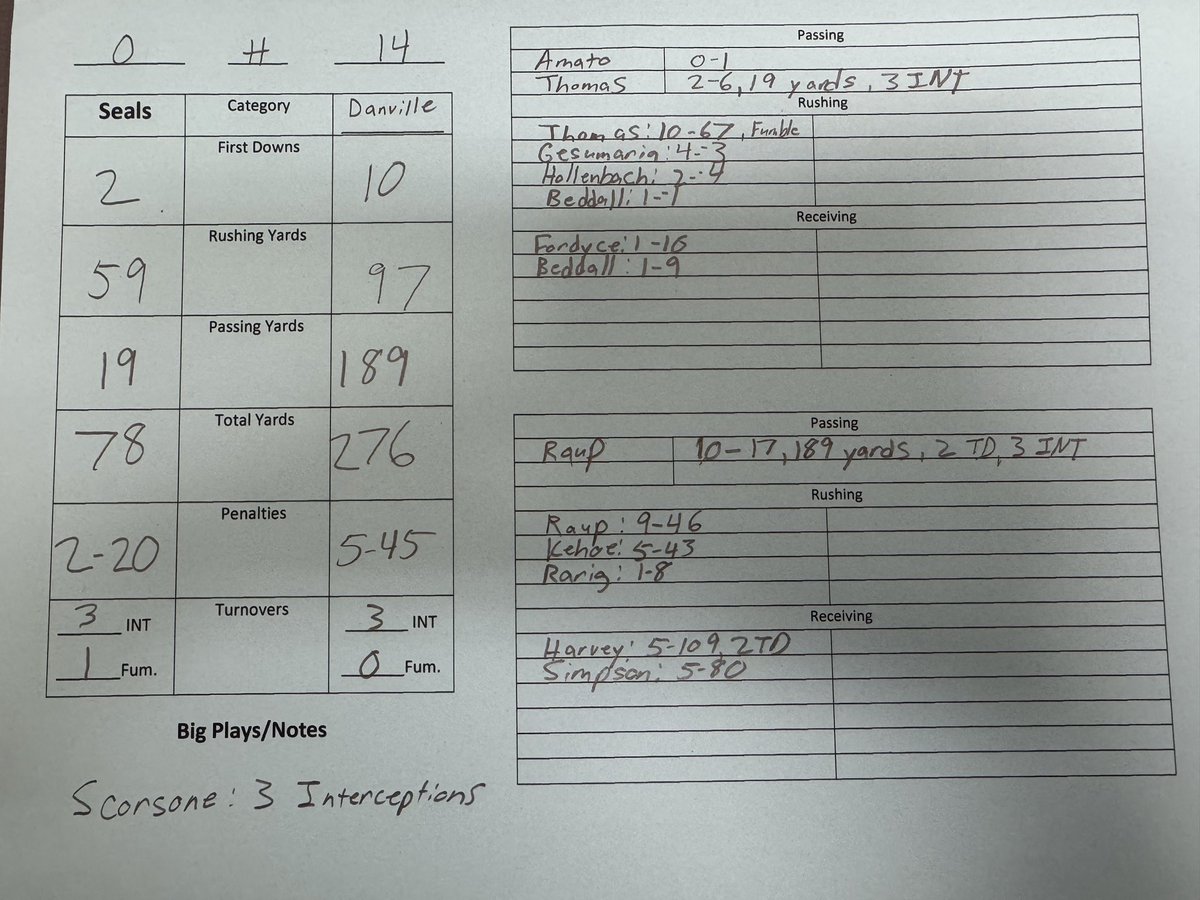 0 H 14
Seals Category Danville
First Downs
2 10
Rushing Yards
59 97
Passing Yards
19 189
Total Yards
78 276
Penalties
2-20 5-45
Turnovers
3 INT 3 INT
1 Fum. 0 Fum.
Big Plays/Notes
Scorsone: 3 Interceptions
Passing
Amato 0-1
Thomas 2-6, 19 yards, 3 INT
Rushing
Thomas: 10-67, Fumble
Gesumaria: 4--3
Hollenbach: 2--4
Beddall: 1--1
Receiving
Fordyce: 1-16
Beddall: 1-9
Passing
Raup 10-17, 189 yards, 2 TD, 3 INT
Rushing
Raup: 9-46
Kehoe: 5-43
Rarig: 1-8
Receiving
Harvey: 5-109, 2TD
Simpson: 5-80